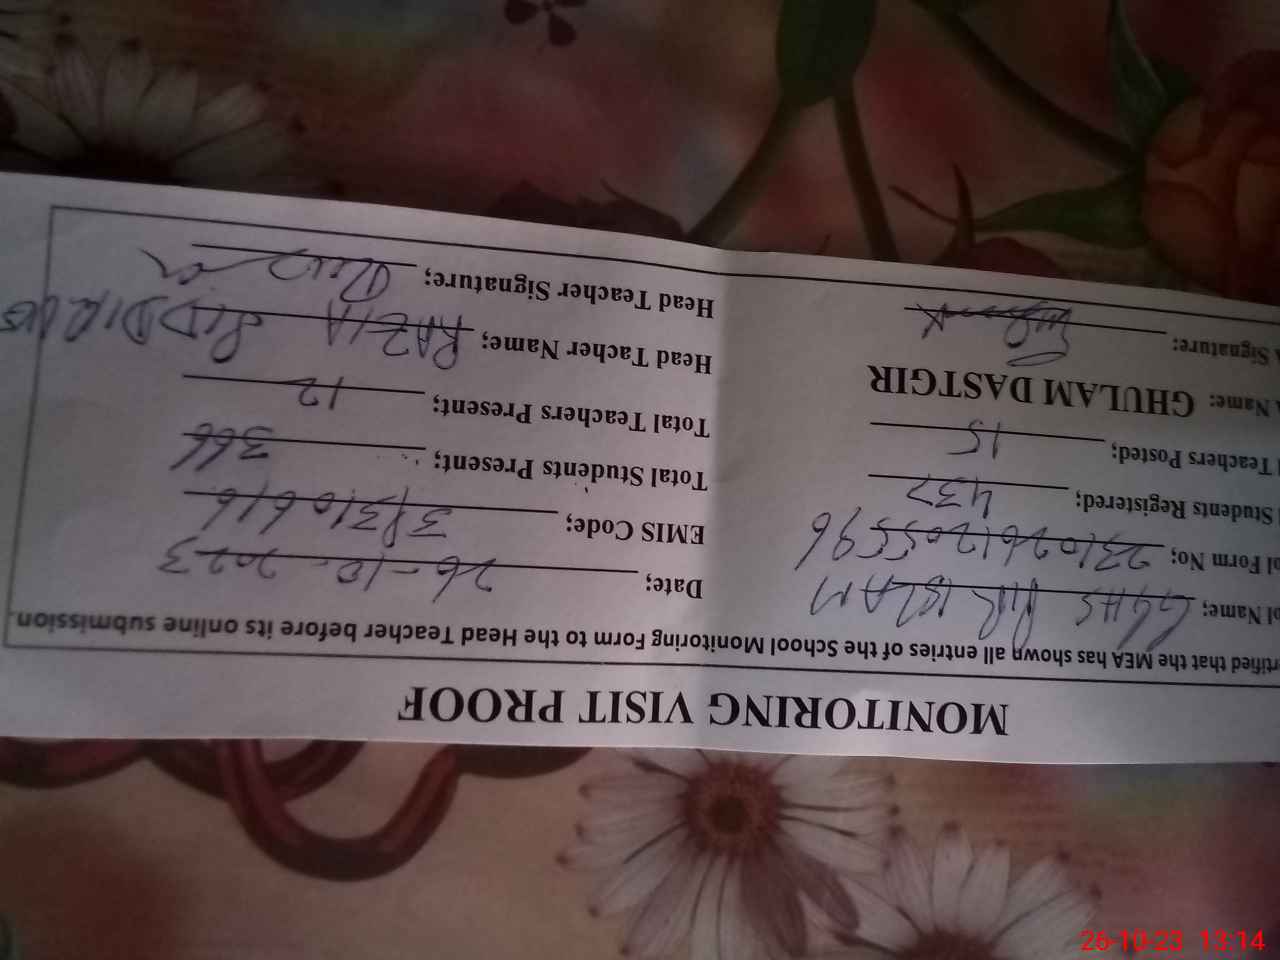 MONITORING VISIT PROOF
rtified that the MEA has shown all entries of the School Monitoring Form to the Head Teacher before its online submission.
ol Name; GGHS PIR ISLAM Date; 26-10-2023
al Form No; EMIS Code; 31310616
Students Registered; 437 Total Students Present; 366
Teachers Posted; 15 Total Teachers Present; 12
A Name: GHULAM DASTGIR Head Tacher Name; RAZIA
A Signature: Head Teacher Signature;
26-10-23 13:14